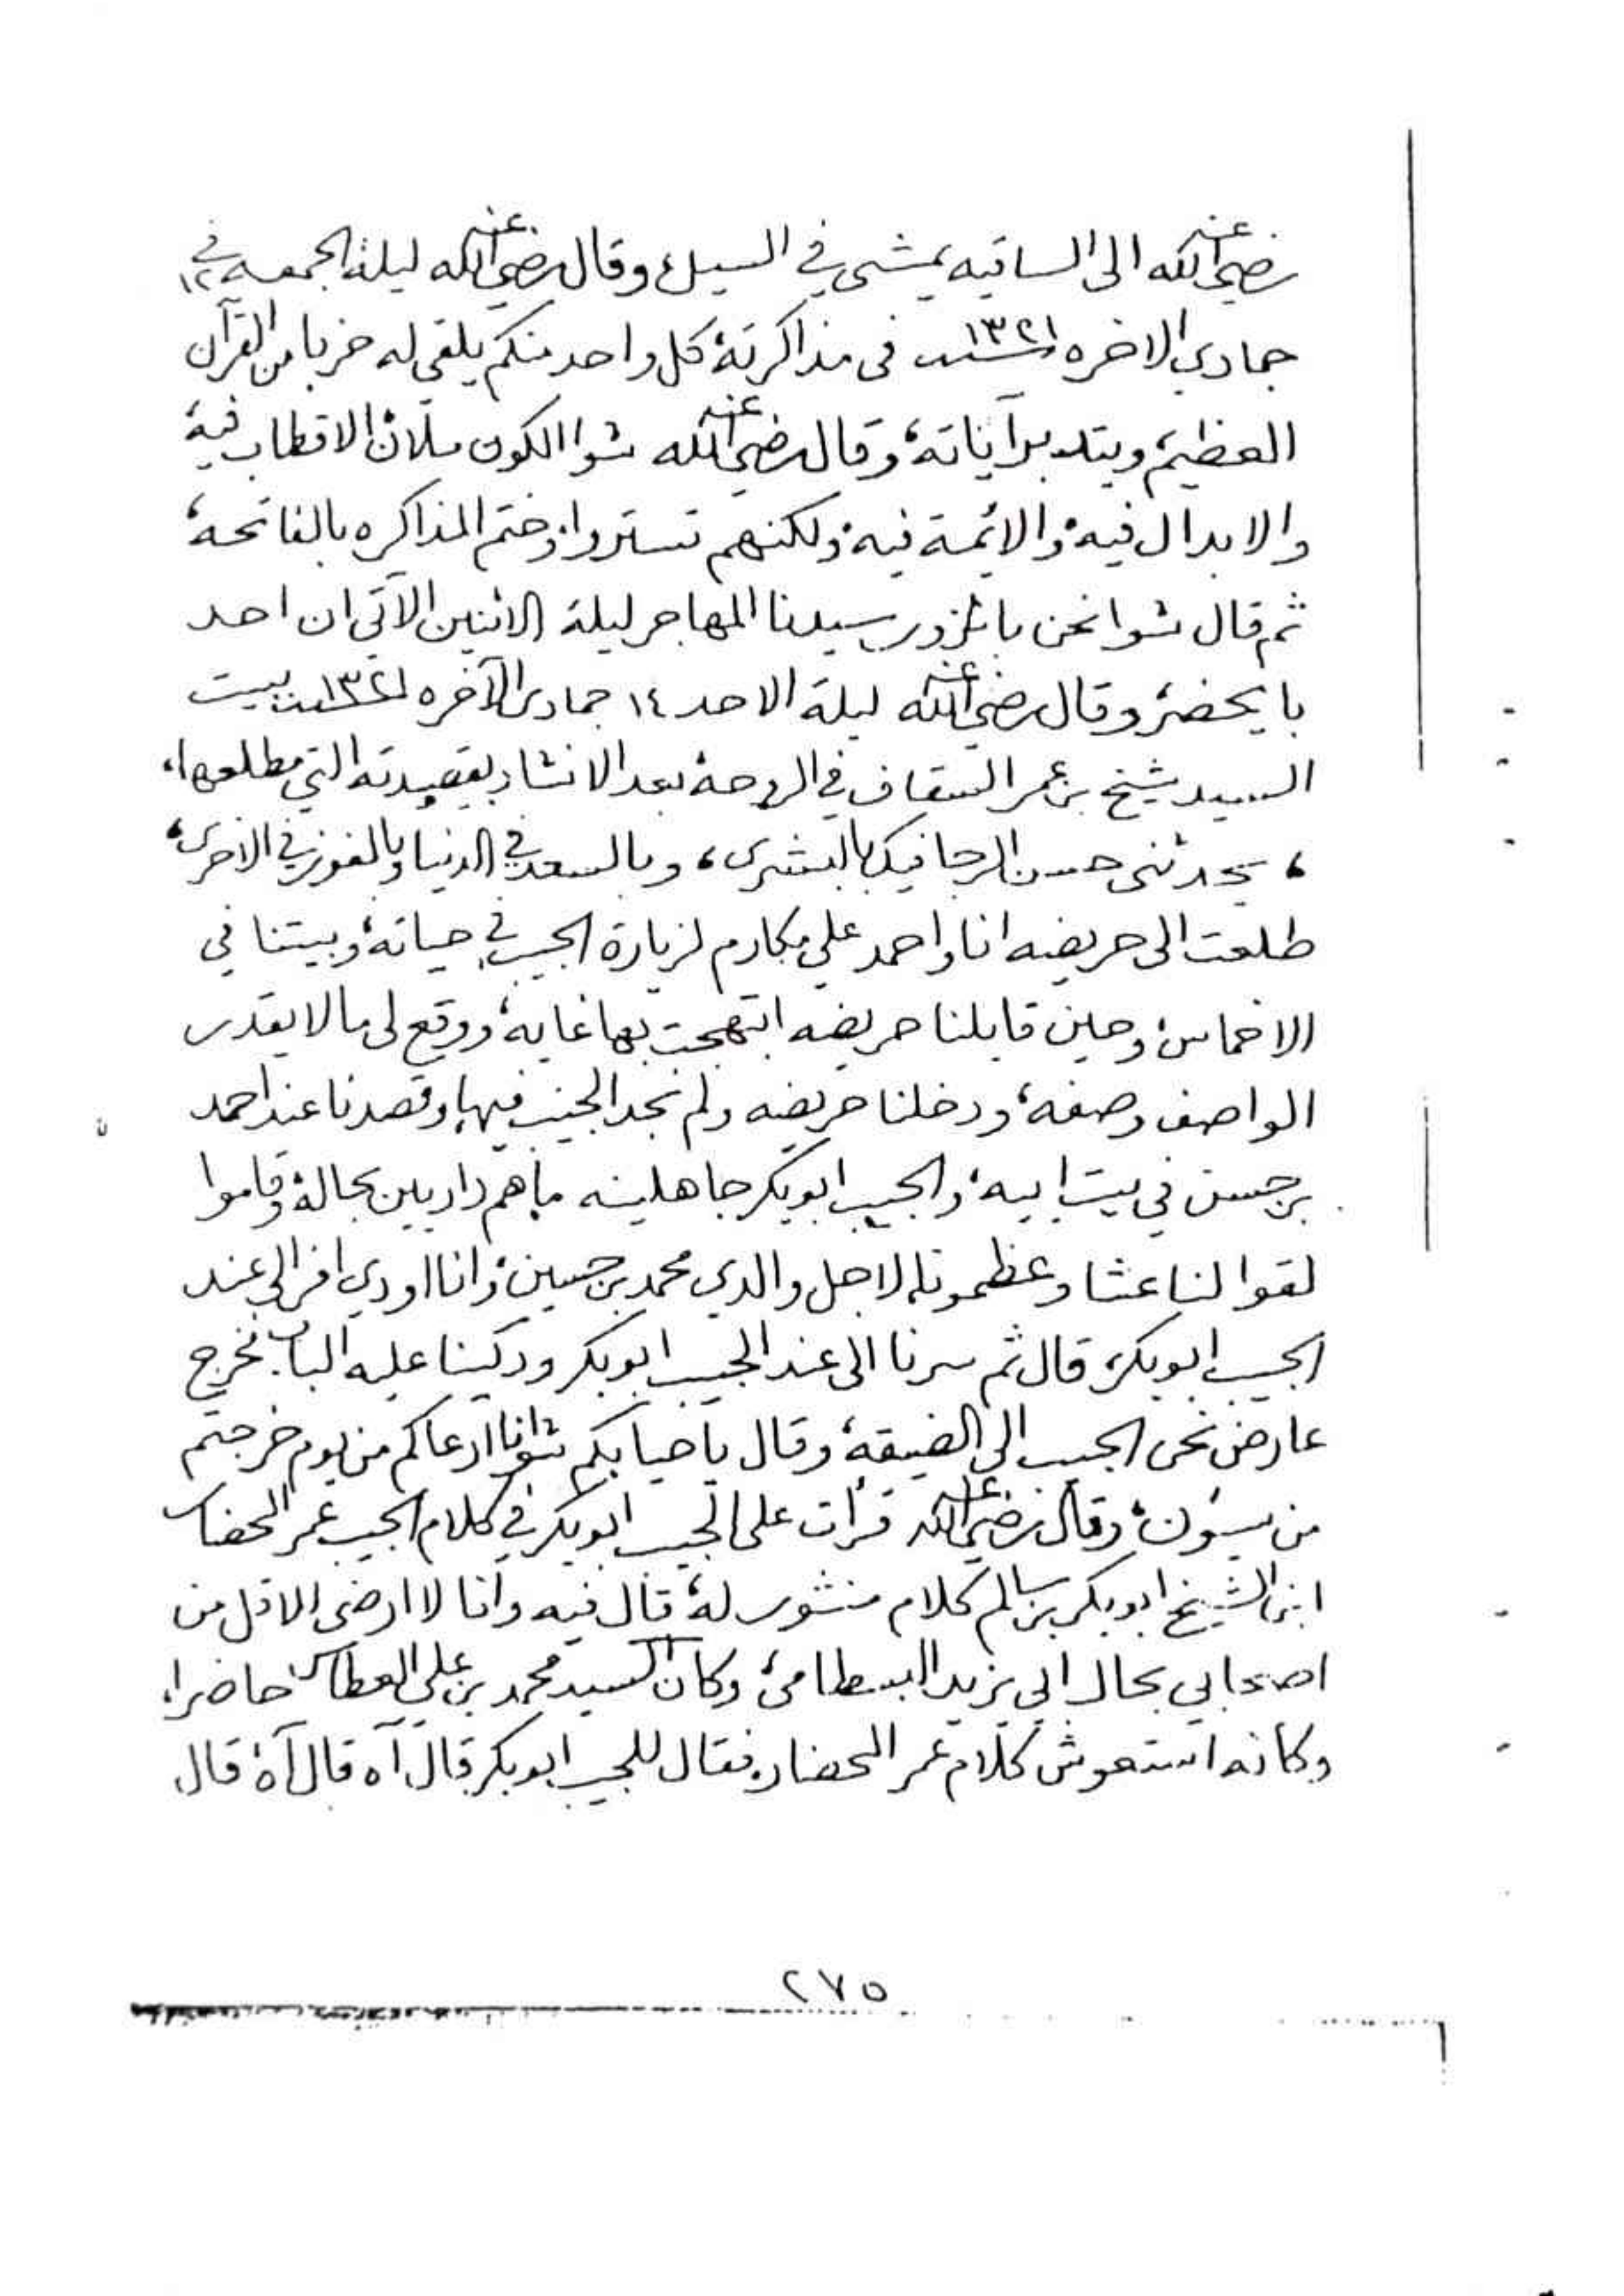 رضي الله عنه الى الساقيه يمشي في السيل، وقال رضي الله عنه ليلة الجمعه في ١٢
جمادي الاخره سنة ١٣٢١ في مذاكرته، كل واحد منكم يلقي له حزبا من القرآن
العظيم، ويتدبر آياته، وقال رضي الله عنه شوا الكون ملآن، الاقطاب فيه،
والابدال فيه، والائمة فيه، ولكنهم تستروا، وختم المذاكره بالفاتحه،
ثم قال شوا نحن بانزور سيدنا المهاجر ليلة الاثنين الآتي ان احد
بايحضر، وقال رضي الله عنه ليلة الاحد ١٤ جمادى الآخره سنة ١٣٢١ ببيت
السيد شيخ بن عمر السقاف في الروحة بعد الانشاد بقصيدته التي مطلعها،
، يحدثني حسن الرجا فيك بالبشرى، وبالسعد في الدنيا وبالفوز في الاخرى،
طلعت الى حريضه انا واحمد علي مكارم لزيارة الحبيب في حياته، وبيتنا في
الاخماس، وحين قابلنا حريضه ابتهجت بها غايه، ووقع لي مالا يقدر
الواصف وصفه، ودخلنا حريضه ولم نجد الحبيب فيها، وقصدنا عند احمد
بن حسن في بيت ابيه، والحبيب ابوبكر جاهلينه ماهم داريين بحاله، وقاموا
لقوا لنا عشا وعظمونا لاجل والدي محمد بن حسين، وانا اودي افر الى عند
الحبيب ابوبكر، قال ثم سرنا الى عند الحبيب ابوبكر ودكينا عليه الباب، فخرج
عارض نحن الحبيب الى الضيقه، وقال ياحيا بكم شوانا ارعاكم من يوم خرجتم
من سيؤن، وقال رضي الله عنه قرأت على الحبيب ابوبكر في كلام الحبيب عمر المحضار
ابن الشيخ ابوبكر بن سالم كلام منثور له، قال فيه وانا لا ارضى الاقل من
اصحابي بحال ابي يزيد البسطامي، وكان السيد محمد بن علي العطاس حاضرا،
وكانه استعوش كلام عمر المحضار، فقال للحبيب ابوبكر قال آه قال آه، قال
٢٧٥